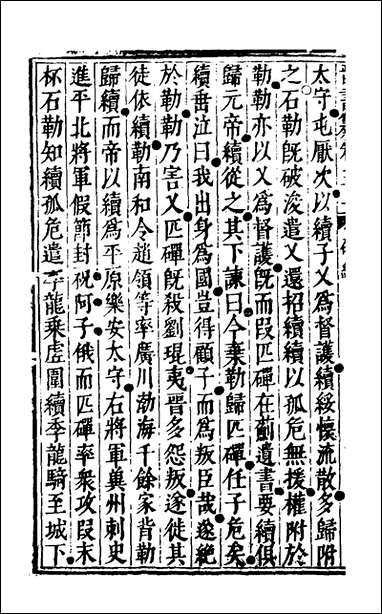 太守屯厭次以續子乂爲督護續綏懷流散多歸附
之石勒既破浚遣乂還招續續以孤危無援權附於
勒勒亦以乂爲督護既而段匹磾在薊遺書要續俱
歸元帝續從之其下諫曰今棄勒歸匹磾任子危矣
續垂泣曰我出身爲國豈得顧子而爲叛臣哉遂絕
於勒勒乃害乂匹磾既殺劉琨夷晉多怨叛遂徙其
徒依續勒南和令趙領等率廣川渤海千餘家背勒
歸續而帝以續爲平原樂安太守右將軍兾州刺史
進平北將軍假節封祝阿子俄而匹磾率衆攻段末
杯石勒知續孤危遣季龍乘虛圍續季龍騎至城下